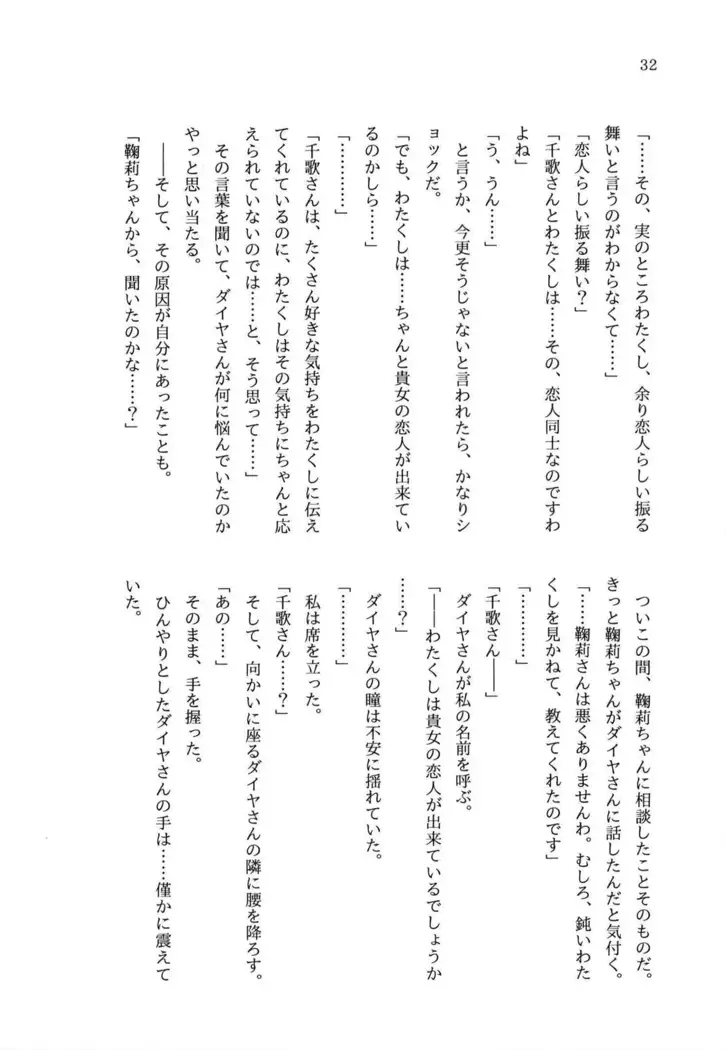 32
「……その、実のところわたくし、余り恋人らしい振る
舞いと言うのがわからなくて……」
「恋人らしい振る舞い?」
「千歌さんとわたくしは……その、恋人同士なのですわ
よね」
「う、うん……」
と言うか、今更そうじゃないと言われたら、かなりシ
ョックだ。
「でも、わたくしは……ちゃんと貴女の恋人が出来てい
るのかしら……」
「…………」
「千歌さんは、たくさん好きな気持ちをわたくしに伝え
てくれているのに、わたくしはその気持ちにちゃんと応
えられていないのでは……と、そう思って……」
その言葉を聞いて、ダイヤさんが何に悩んでいたのか
やっと思い当たる。
――そして、その原因が自分にあったことも。
「鞠莉ちゃんから、聞いたのかな……?」
ついこの間、鞠莉ちゃんに相談したことそのものだ。
きっと鞠莉ちゃんがダイヤさんに話したんだと気付く。
「……鞠莉さんは悪くありませんわ。むしろ、鈍いわた
くしを見かねて、教えてくれたのです」
「…………」
「千歌さん――」
ダイヤさんが私の名前を呼ぶ。
「――わたくしは貴女の恋人が出来ているでしょうか
……?」
ダイヤさんの瞳は不安に揺れていた。
「…………」
私は席を立った。
「千歌さん……?」
そして、向かいに座るダイヤさんの隣に腰を降ろす。
「あの……」
そのまま、手を握った。
ひんやりとしたダイヤさんの手は……僅かに震えて
いた。